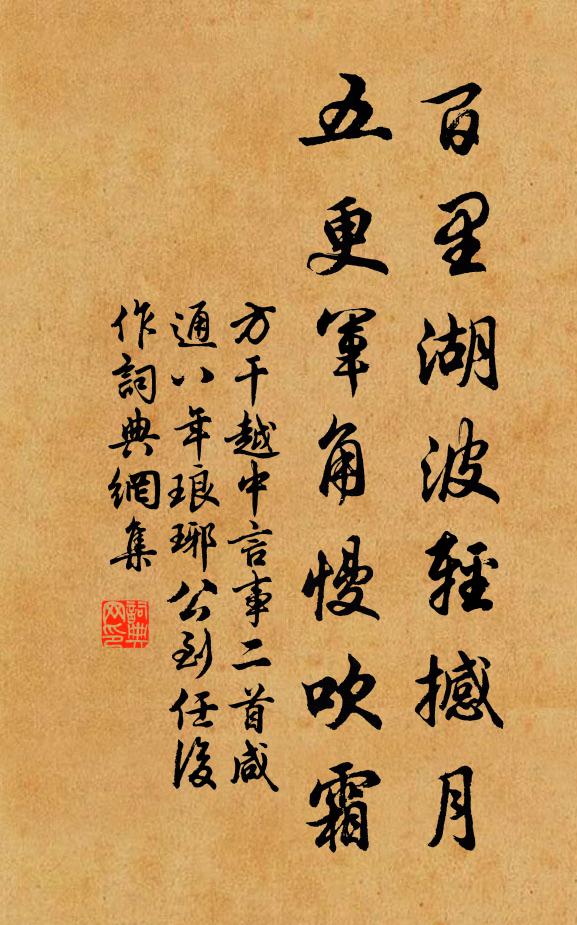 百里湖波輕撼月
五更軍角慢吹霜
方干越中言事二首咸
通八年琅琊公到任後
作詞典網集
詞典网印